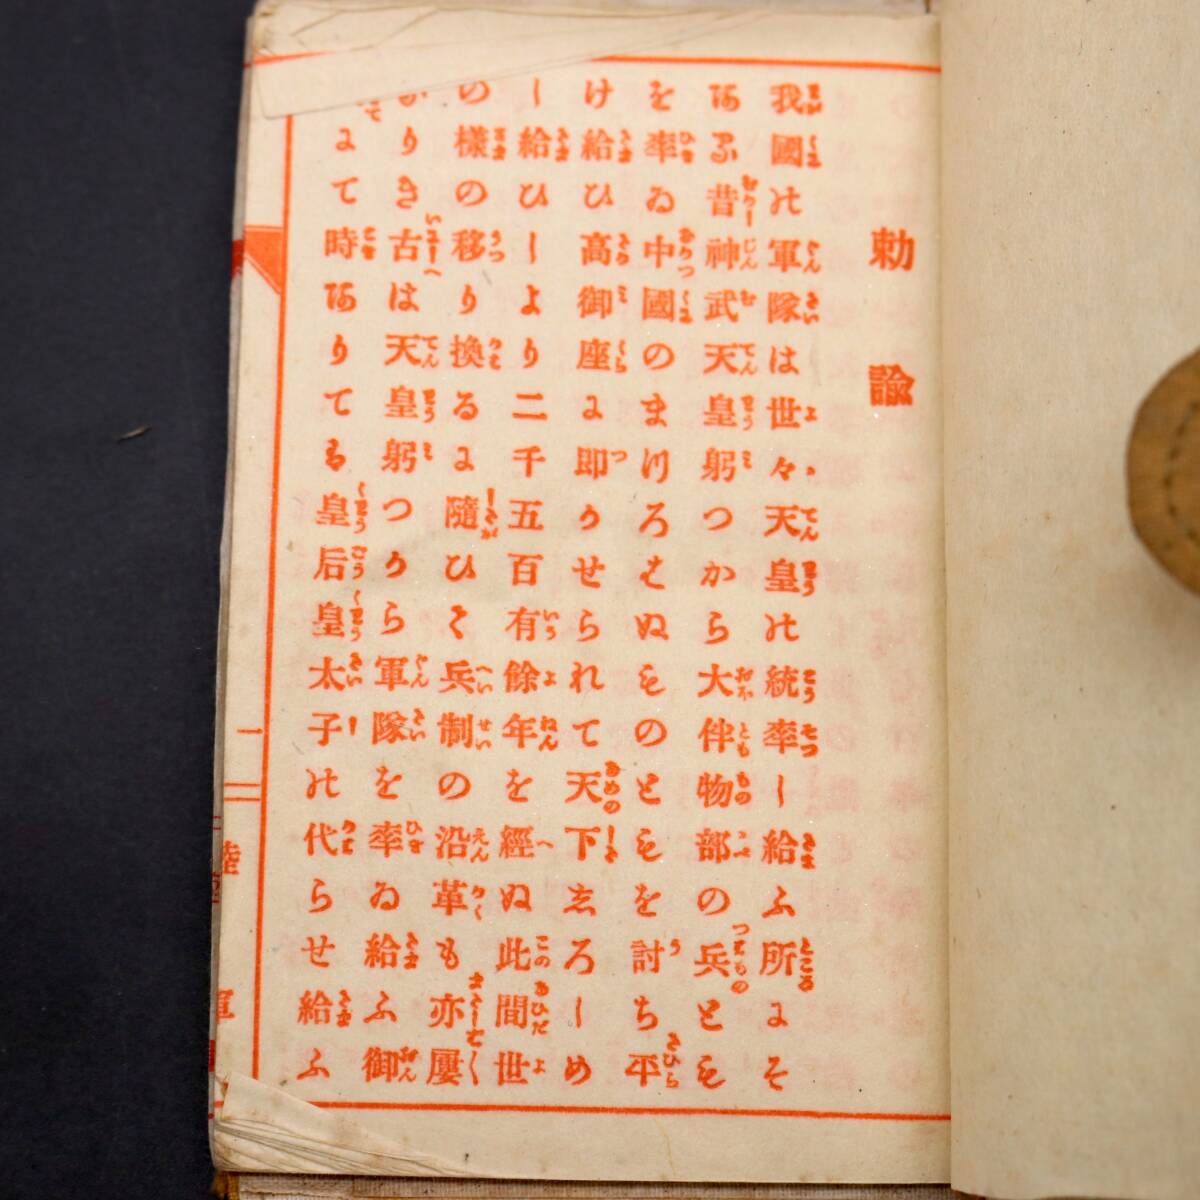 勅諭
我國の軍隊は世々天皇の統率し給ふ所にそ
ある昔神武天皇躬つから大伴物部の兵ともを
を率ゐ中國のまつろはぬものともを討ち平
け給ひ高御座に即かせられて天下しろしめ
し給ひしより二千五百有餘年を經ぬ此間世
の樣の移り換るに隨ひて兵制の沿革も亦屢
なりき古は天皇躬つから軍隊を率ゐ給ふ御
にて時ありては皇后皇太子の代らせ給ふ